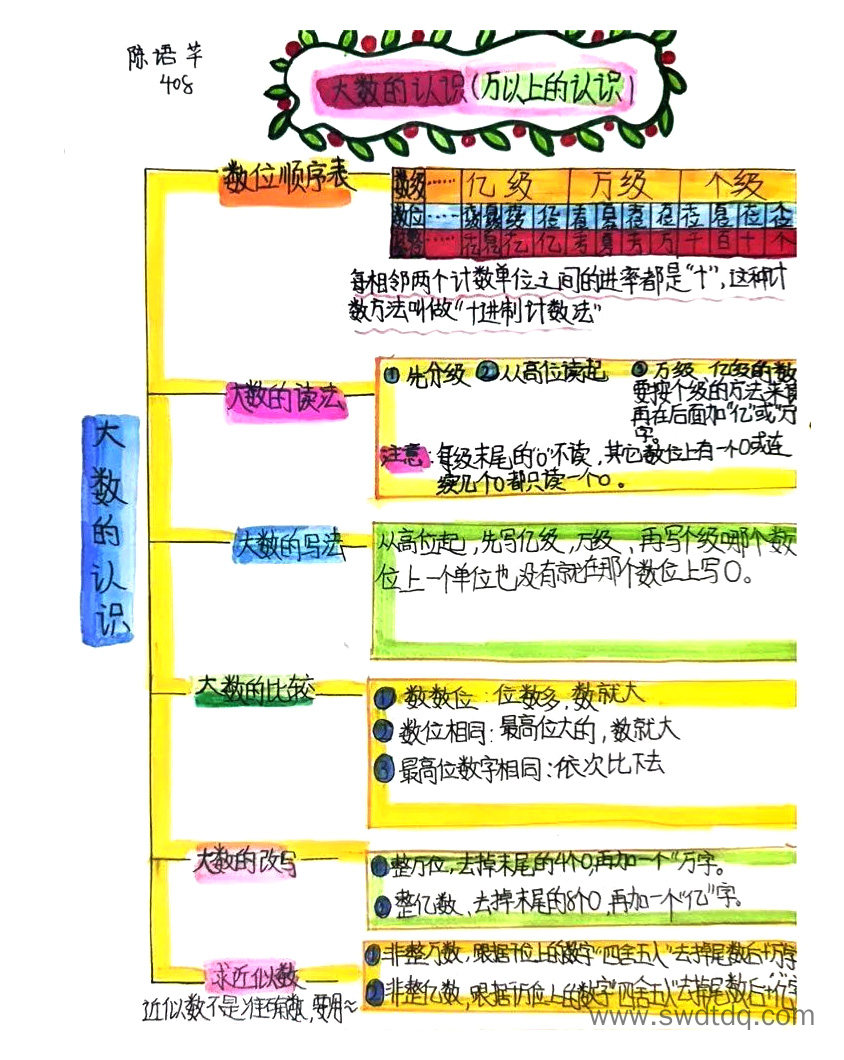 陈语芊
408
大数的认识(万以上的认识)
大数的认识
数位顺序表
数级 …… 亿级 万级 个级
数位 ……
…… 亿 万 千 百 十 个
每相邻两个计数单位之间的进率都是"十",这种计
数方法叫做"十进制计数法"
大数的读法
①先分级 ②从高位读起 ③万级、亿级的数
要按个级的方法来
再在后面加"亿"或"万
字。
注意:每级末尾的"0"不读,其它数位上有一个0或连
续几个0都只读一个0。
大数的写法
从高位起,先写亿级,万级、再写个级哪个数
位上一个单位也没有就在那个数位上写0。
大数的比较
①数数位:位数多,数就大
②数位相同:最高位大的,数就大
③最高位数字相同:依次比下去
大数的改写
①整万位,去掉末尾的4个0,再加一个"万字。
②整亿数、去掉末尾的8个0,再加一个"亿"字。
求近似数
①非整万数,跟据千位上的数字"四舍五入"去掉尾数后+万字
②非整亿数,跟据千万位上的数字"四舍五入"去掉尾数后+亿字
近似数不是准确数,要用~
www.swdtdq.com